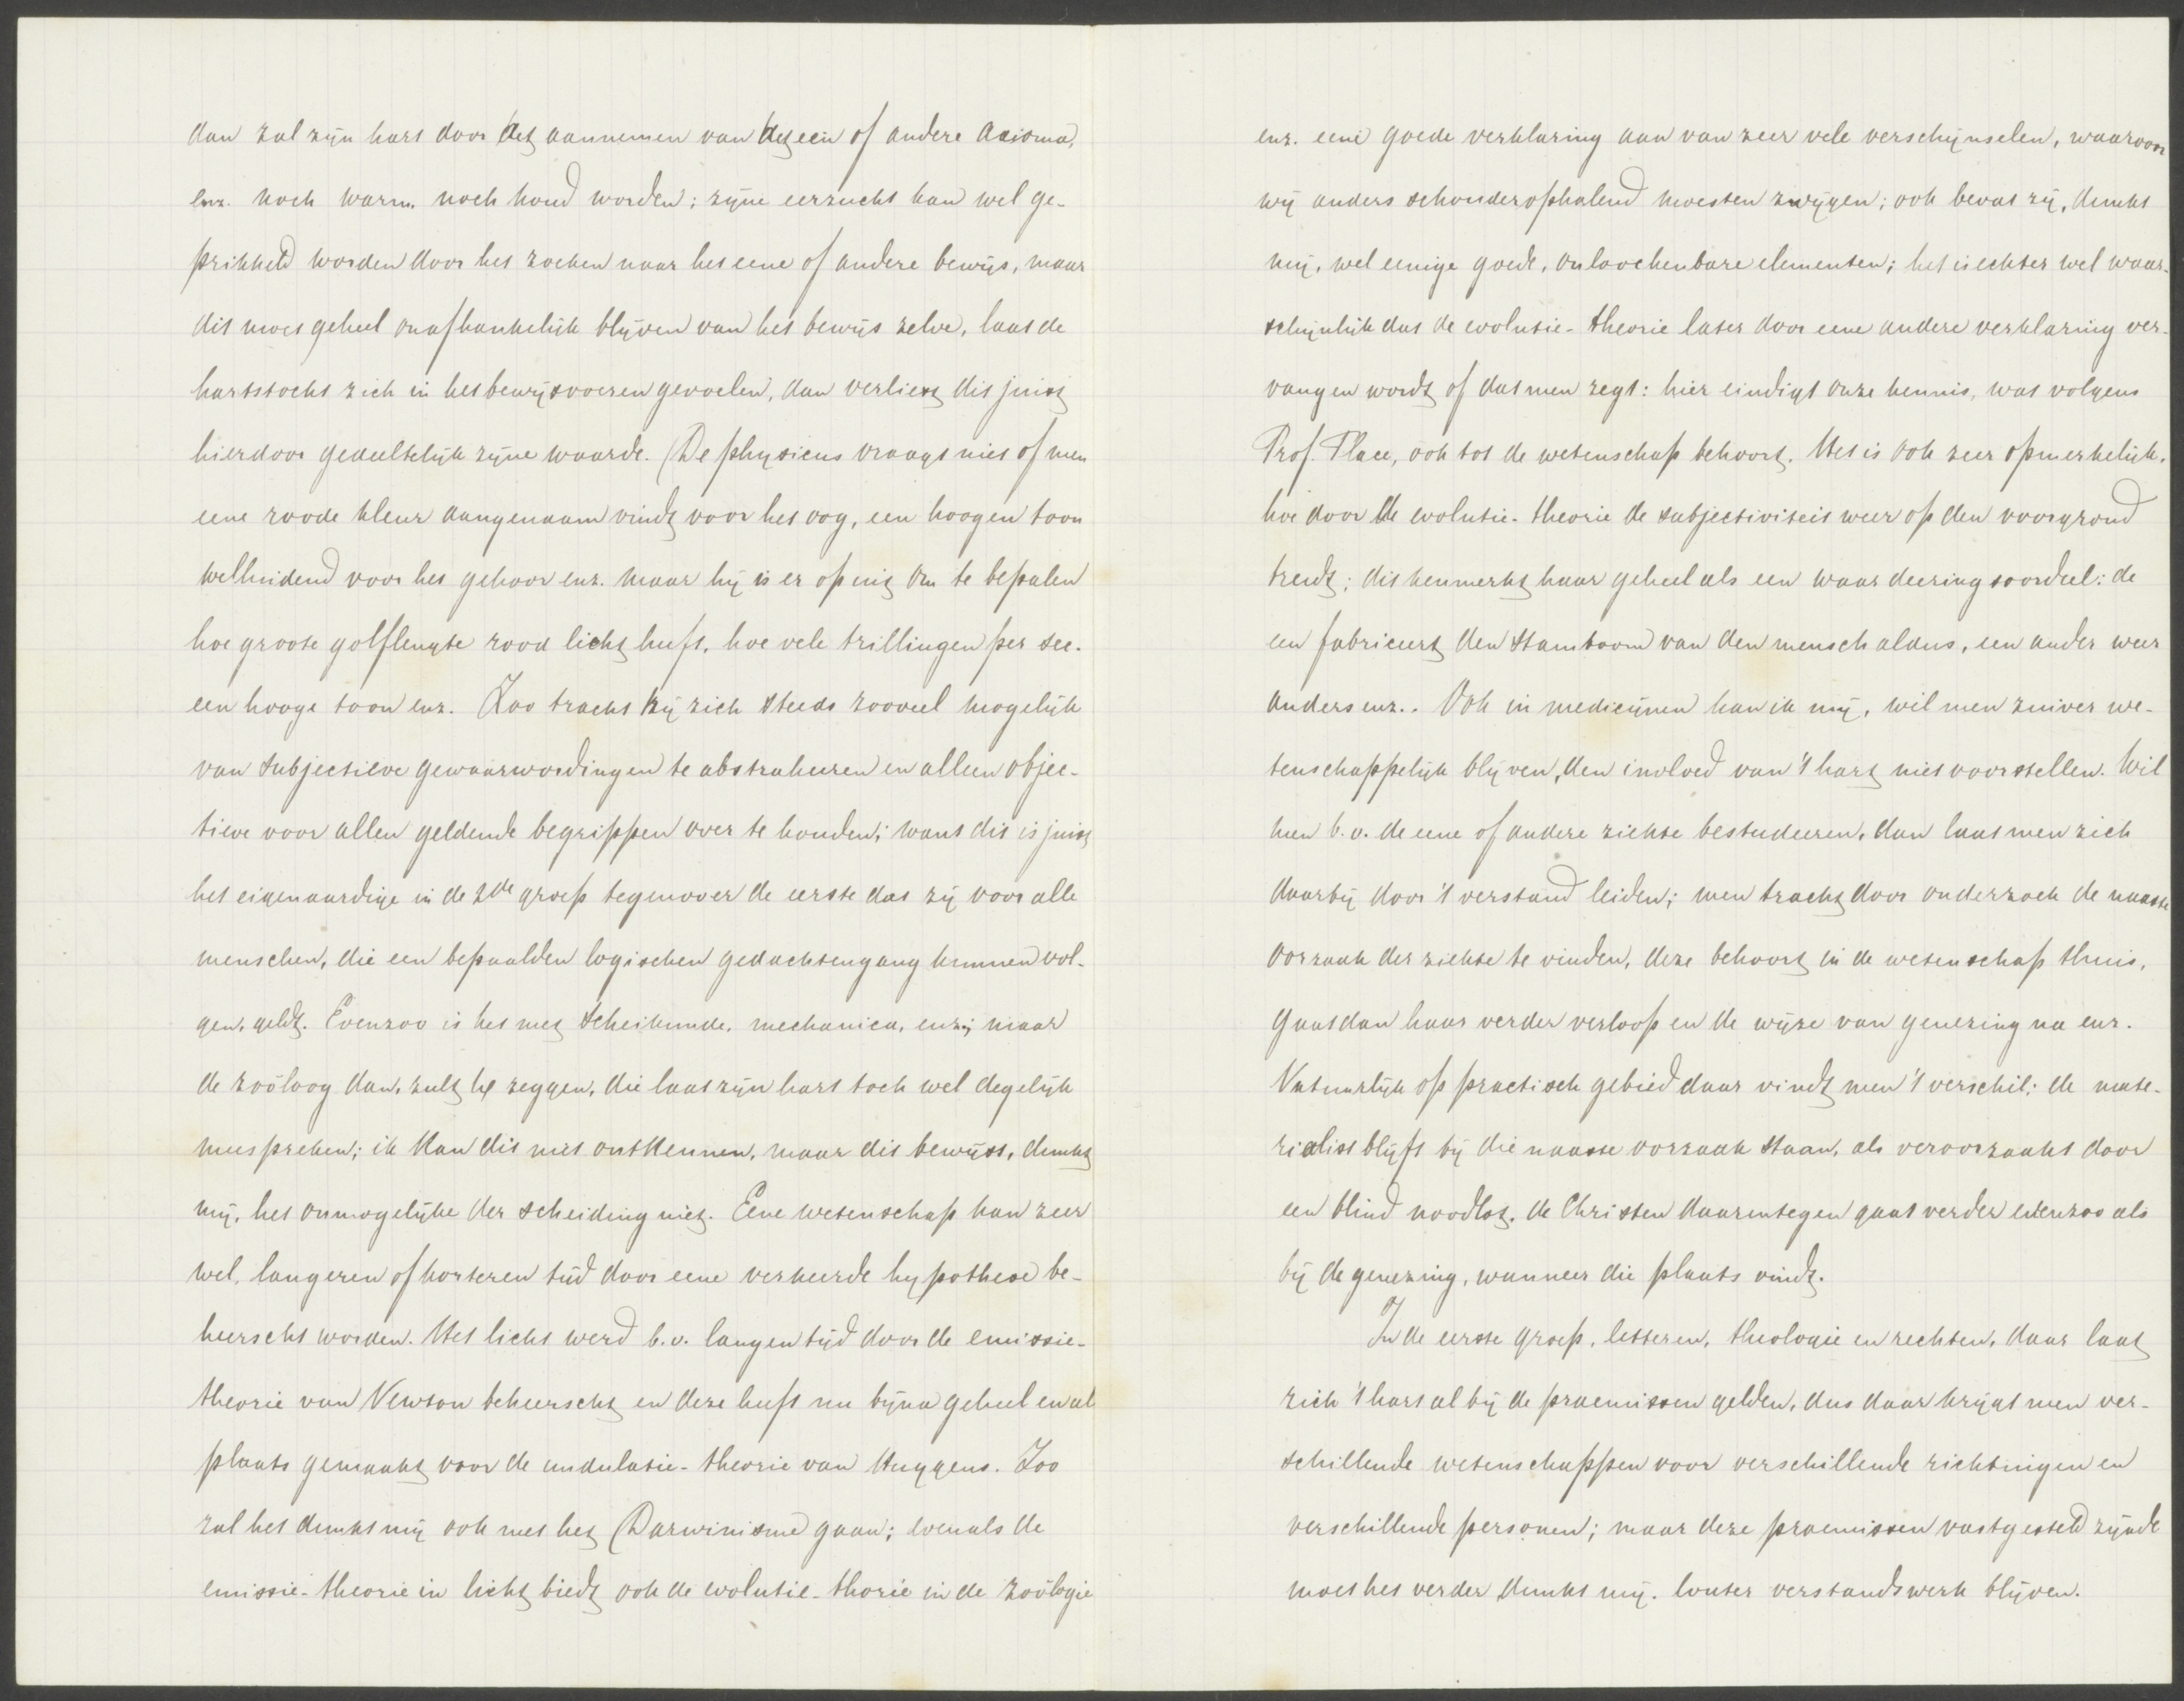 dan zal zijn hart door het aannemen van het een of andere axioma,
enz. noch warm, noch koud worden; zijne eerzucht kan wel ge-
prikkeld worden door het zoeken naar het eene of andere bewijs, maar
dit moet geheel onafhankelijk blijven van het bewijs zelve, laat de
hartstocht zich in het bewijsvoeren gevoelen, dan verliest dit juist
hierdoor gedeeltelijk zijne waarde. De physicus vraagt niet of men
eene roode kleur aangenaam vindt voor het oog, een hoogen toon
welluidend voor het gehoor enz. maar hij is er op uit om te bepalen
hoe groote golflengte rood licht heeft, hoe vele trillingen per sec.
een hooge toon enz. Zoo tracht hij zich steeds zooveel mogelijk
van subjectieve gewaarwordingen te abstraheeren en alleen objec-
tieve voor allen geldende begrippen over te houden; want dit is juist
het eigenaardige in de 2de groep tegenover de eerste dat zij voor alle
menschen, die een bepaalden logischen gedachtengang kunnen vol-
gen, geldt. Evenzoo is het met scheikunde, mechanica, enz.; maar
de zoöloog dan, zult ge zeggen, die laat zijn hart toch wel degelijk
meespreken; ik kan dit niet ontkennen, maar dit bewijst, dunkt
mij, het onmogelijke der scheiding niet. Eene wetenschap kan zeer
wel, langeren of korteren tijd door eene verkeerde hypothese be-
heerscht worden. Het licht werd b.v. langen tijd door de emissie-
theorie van Newton beheerscht en deze heeft nu bijna geheel en al
plaats gemaakt voor de undulatie-theorie van Huygens. Zoo
zal het dunkt mij ook met het Darwinisme gaan; evenals de
emissie-theorie in licht biedt ook de evolutie-thorie in de zoölogie
enz. eene goede verklaring aan van zeer vele verschijnselen, waarvoor
wij anders schouderophalend moesten zwijgen; ook bevat zij, dunkt
mij, wel eenige goede, onloochenbare elementen; het is echter wel waar-
schijnlijk dat de evolutie-theorie later door eene andere verklaring ver-
vangen wordt of dat men zegt: hier eindigt onze kennis, wat volgens
Prof. Place, ook tot de wetenschap behoort. Het is ook zeer opmerkelijk,
hoe door de evolutie-theorie de subjectiviteit weer op den voorgrond
treedt; dit kenmerkt haar geheel als een waardeeringsoordeel: de
een fabriceert den stamboom van den mensch aldus, een ander weer
anders enz.. Ook in medicijnen kan ik mij, wil men zuiver we-
tenschappelijk blijven, den invloed van 't hart niet voorstellen. Wil
men b.v. de eene of andere ziekte bestudeeren, dan laat men zich
daarbij door 't verstand leiden; men tracht door onderzoek de naaste
oorzaak der ziekte te vinden, deze behoort in de wetenschap thuis,
gaat dan haar verder verloop en de wijze van genezing na enz.
Natuurlijk op practisch gebied daar vindt men 't verschil: de mate-
rialist blijft bij die naaste oorzaak staan, als veroorzaakt door
een blind noodlot, de Christen daarentegen gaat verder evenzoo als
bij de genezing, wanneer die plaats vindt.
In de eerste groep, letteren, theologie en rechten, daar laat
zich 't hart al bij de praemissen gelden, dus daar krijgt men ver-
schillende wetenschappen voor verschillende richtingen en
verschillende personen; maar deze praemissen vastgesteld zijnde
moet het verder dunkt mij, louter verstandswerk blijven.